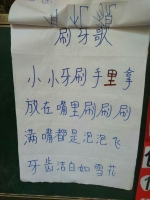 刷牙歌
小小牙刷手里拿
放在嘴里刷刷刷
满嘴都是泡泡飞
牙齿洁白如雪花